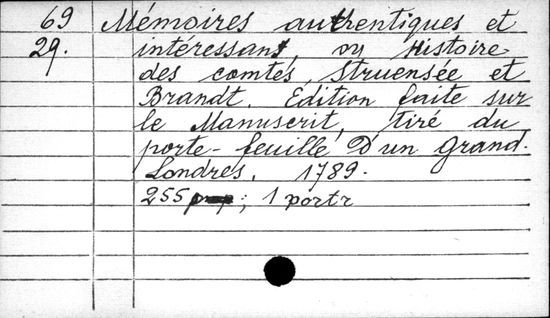 69 Mémoires authentiques et
29. intéressant, ou Histoire
des comtés, Struensée et
Brandt. Edition faite sur
le Manuscrit, tiré du
porte-feuille D'un Grand.
Londres. 1789.
255 pp; 1 portr